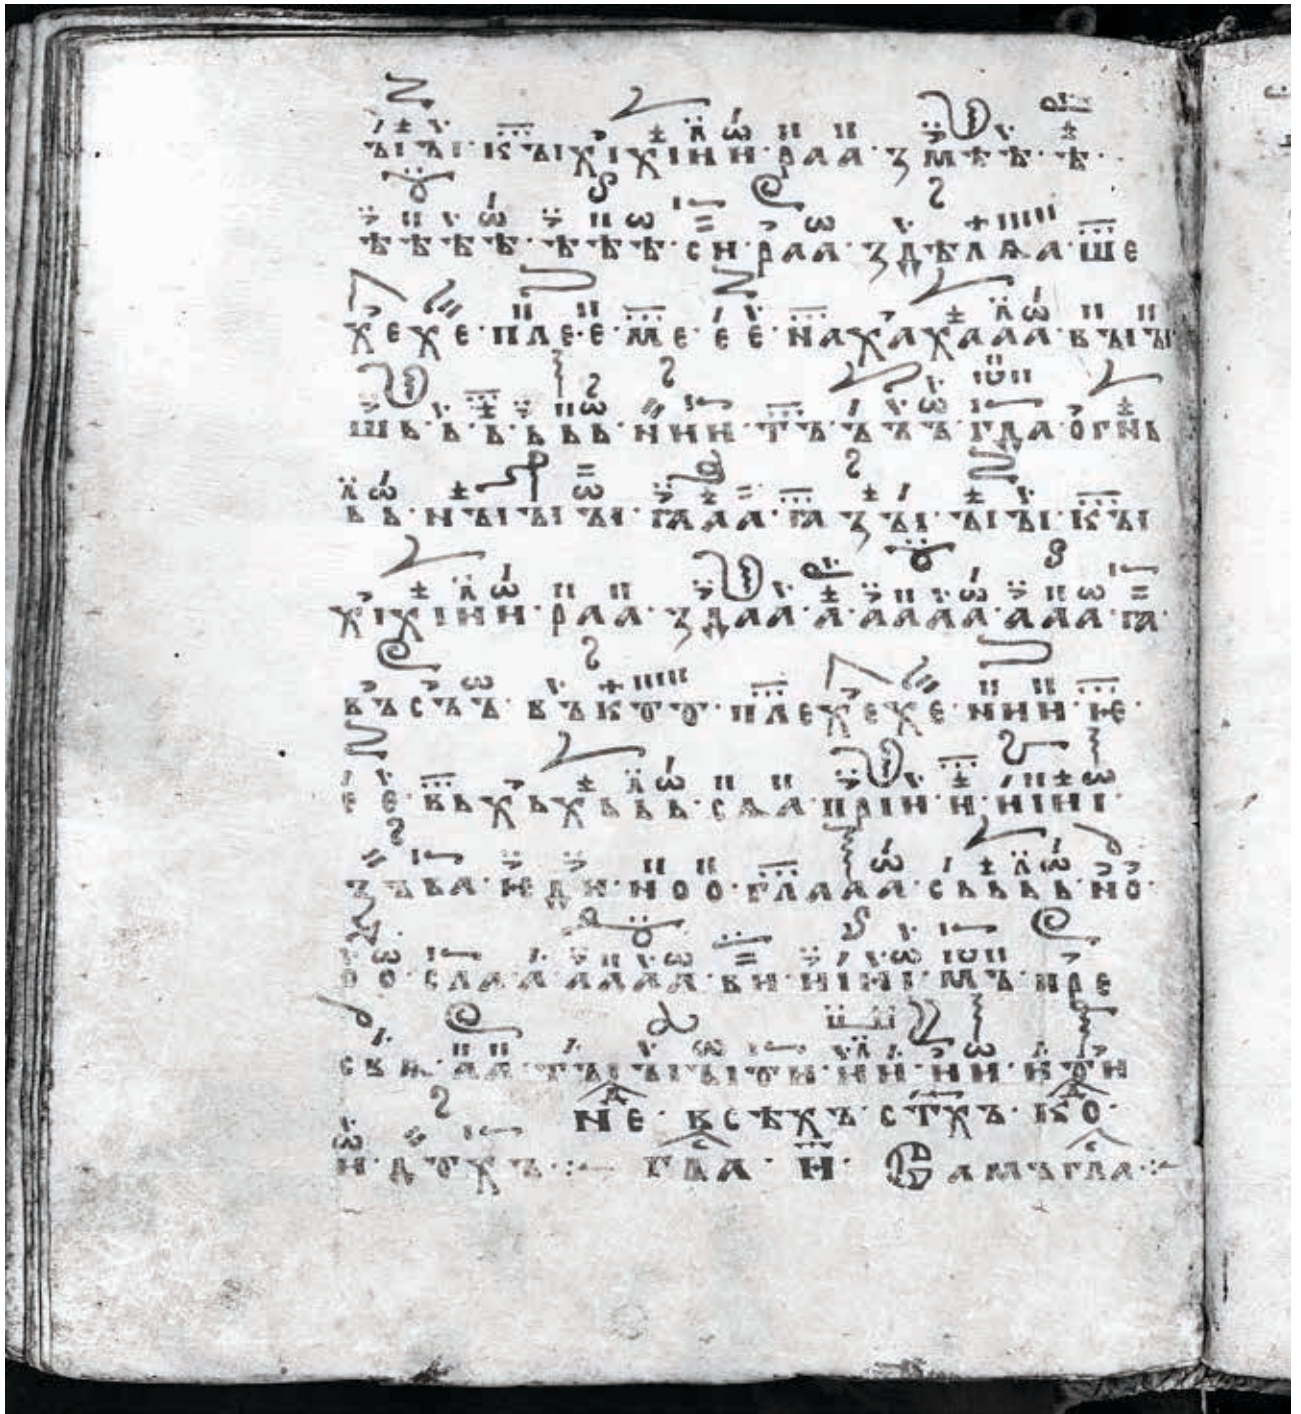 ꙑꙑ·кꙑхіхіни·раа·змѣѣ·ѣ·
ѣѣѣѣ·ѣѣѣ·си·раа·здѣлѧа·ше
хехе·пле·е·ме·ее·нахахааа·вꙑꙑ·
шь·ь·ь·ььь·нии·тъ·ъъъ·гдаогнь
ьь·нꙑꙑꙑ·ꙗаа·ꙗзꙑ·ꙑꙑ·кꙑ
хіхіни·раа·здаа·а·аааа·ааа·ꙗ·
въсъъ·въкоо·плехехе·нии·ѥ·
ее·вьхьхььь·сѧа·пріи·и·нині·
зъва·иди·ноо·глааа·сььь·но·
оо·слаа·аааа·ви·нині·мъ·пре
свѧ·аа·тꙑꙑꙑои·ии·ии·иои
не·всѣхъ·стхъ·ко·
и·дохъ·:~ гла·и· Самъгла·:~